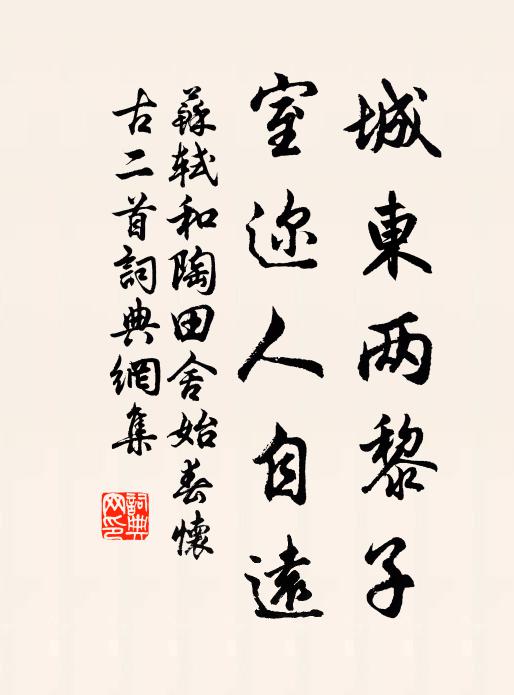 城東两黎子
室迩人自遠
蘇軾和陶田舍始春懷
古二首詞典網集
詞典
网印